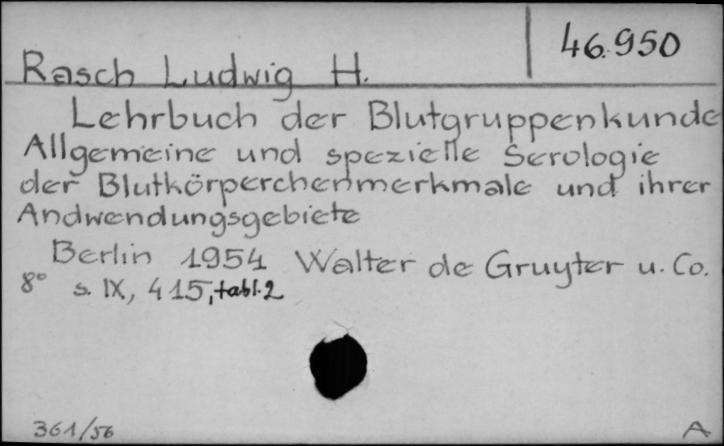 46.950
Rasch Ludwig H.
Lehrbuch der Blutgruppenkunde
Allgemeine und spezielle Serologie
der Blutkörperchenmerkmale und ihrer
Andwendungsgebiete
Berlin 1954 Walter de Gruyter u. Co.
8° s. IX, 415, tabl. 2
361/56 A